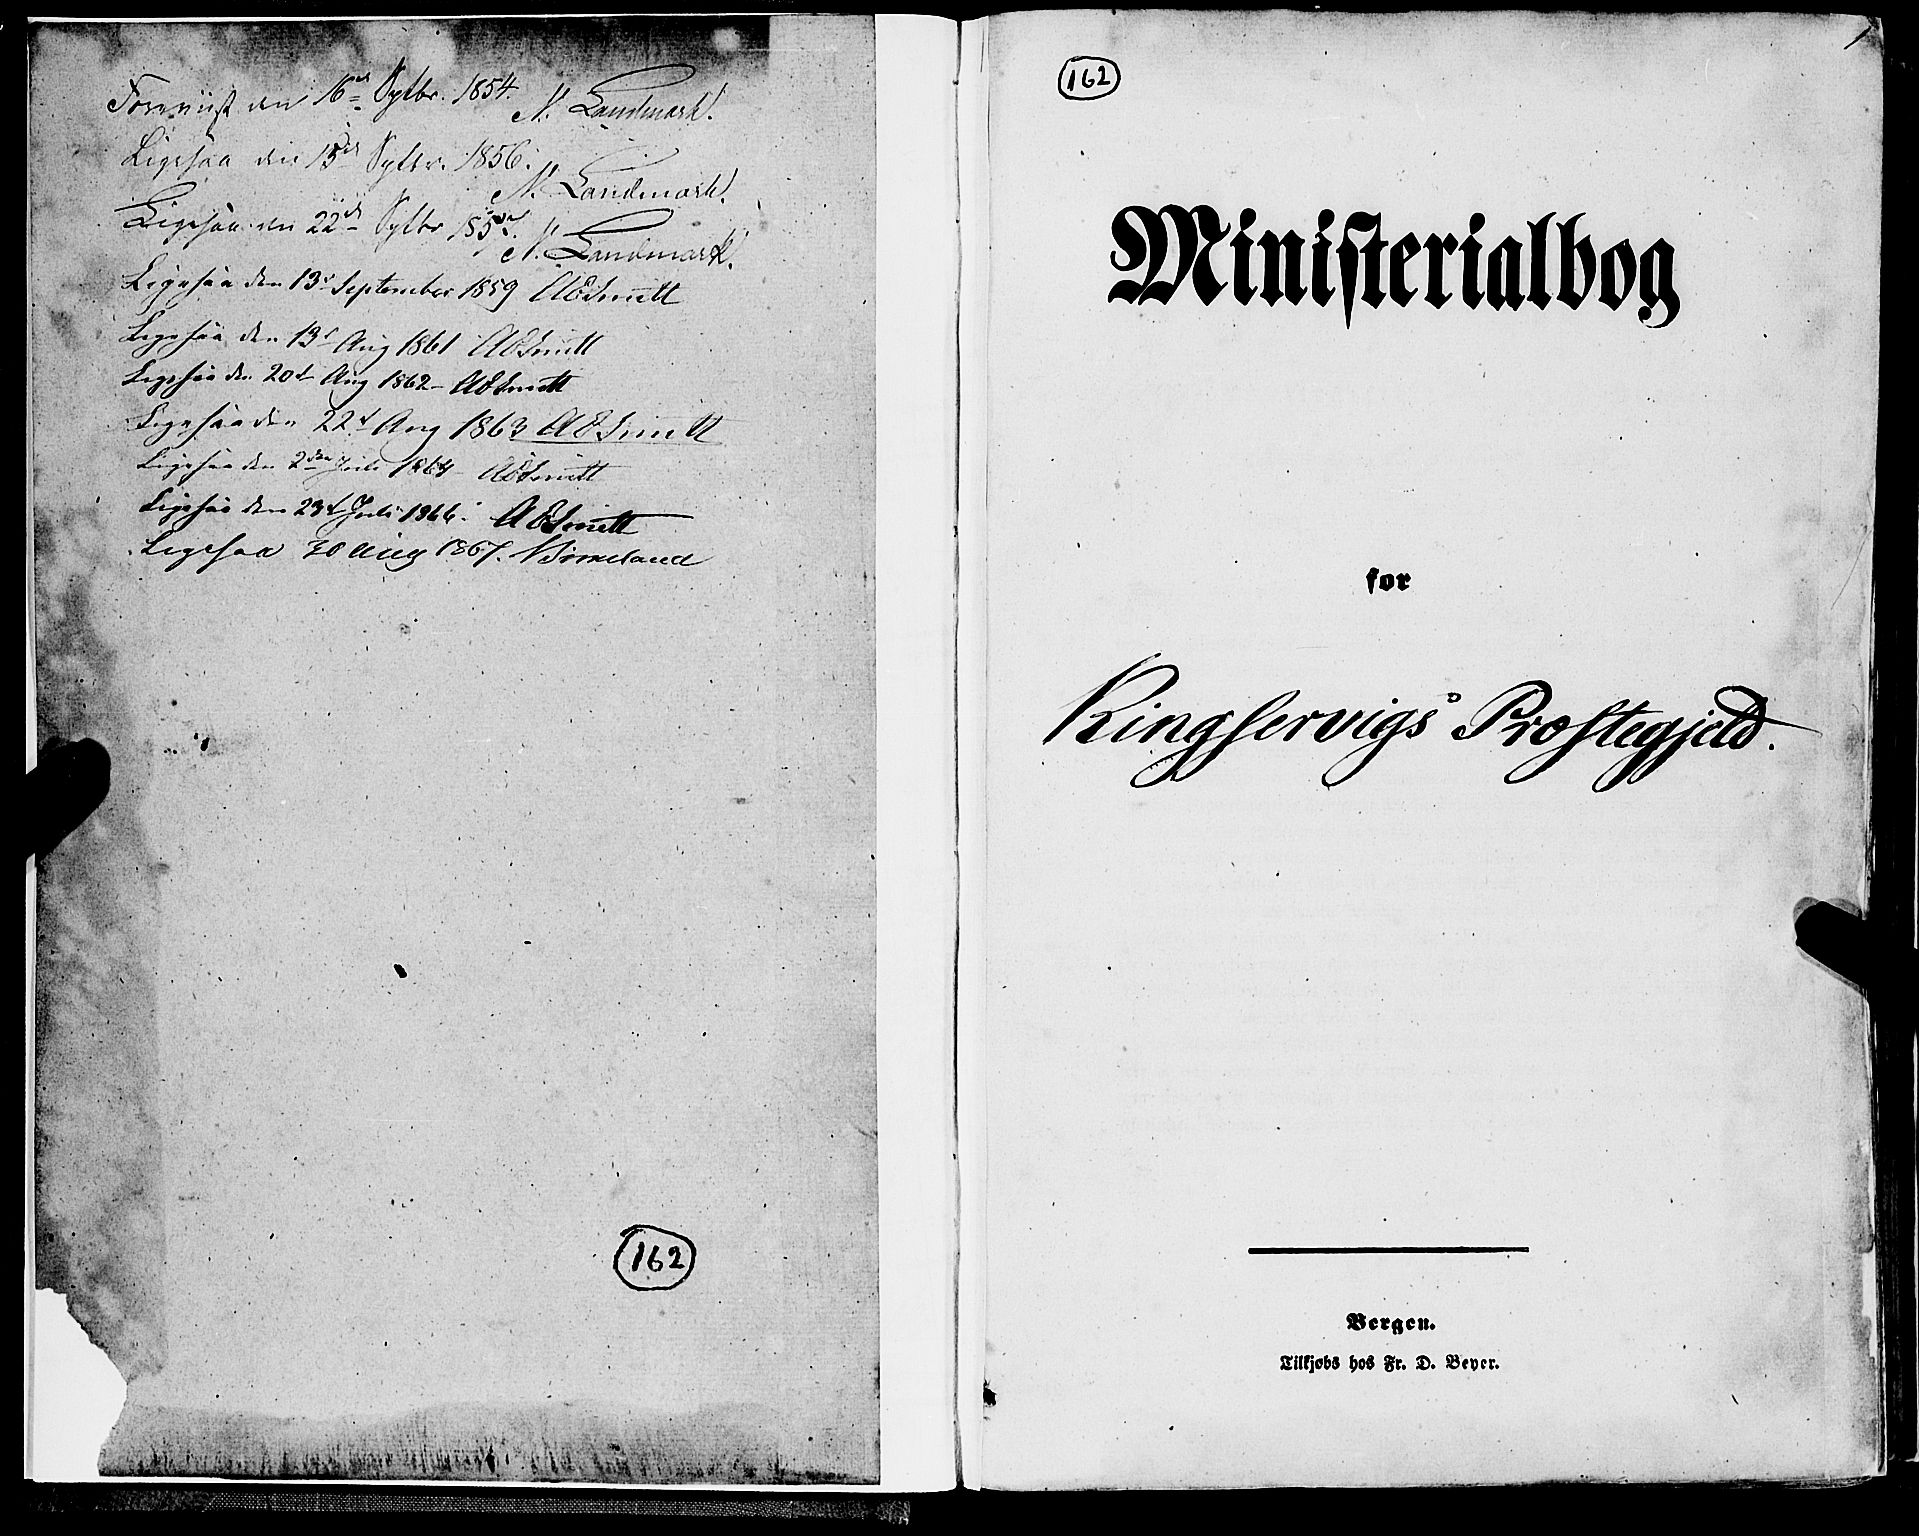 Foreviist den 16de Septbr. 1854. N. Landmark.
Ligesaa den 15de Septbr. 1856.
N. Landmark.
Ligesaa den 22de Septbr
N. Landmark.
Ligesaa den 13d September 1859 AESmitt
Ligesaa den 13d Aug 1861 AESmitt
Ligesaa den 20d Aug 1862 – AESmitt
Ligesaa den 22d Aug 1863 AESmitt
Ligesaa den 2den Juli 1864 – AESmitt
Ligesaa den 23d Juli 1866. AESmitt
Ligesaa 30 Aug 1867.
162
162
1
Ministerialbog
for
Kingservigs Præstegjeld.
Bergen.
Tilkjøbs hos Fr. D. Beyer.